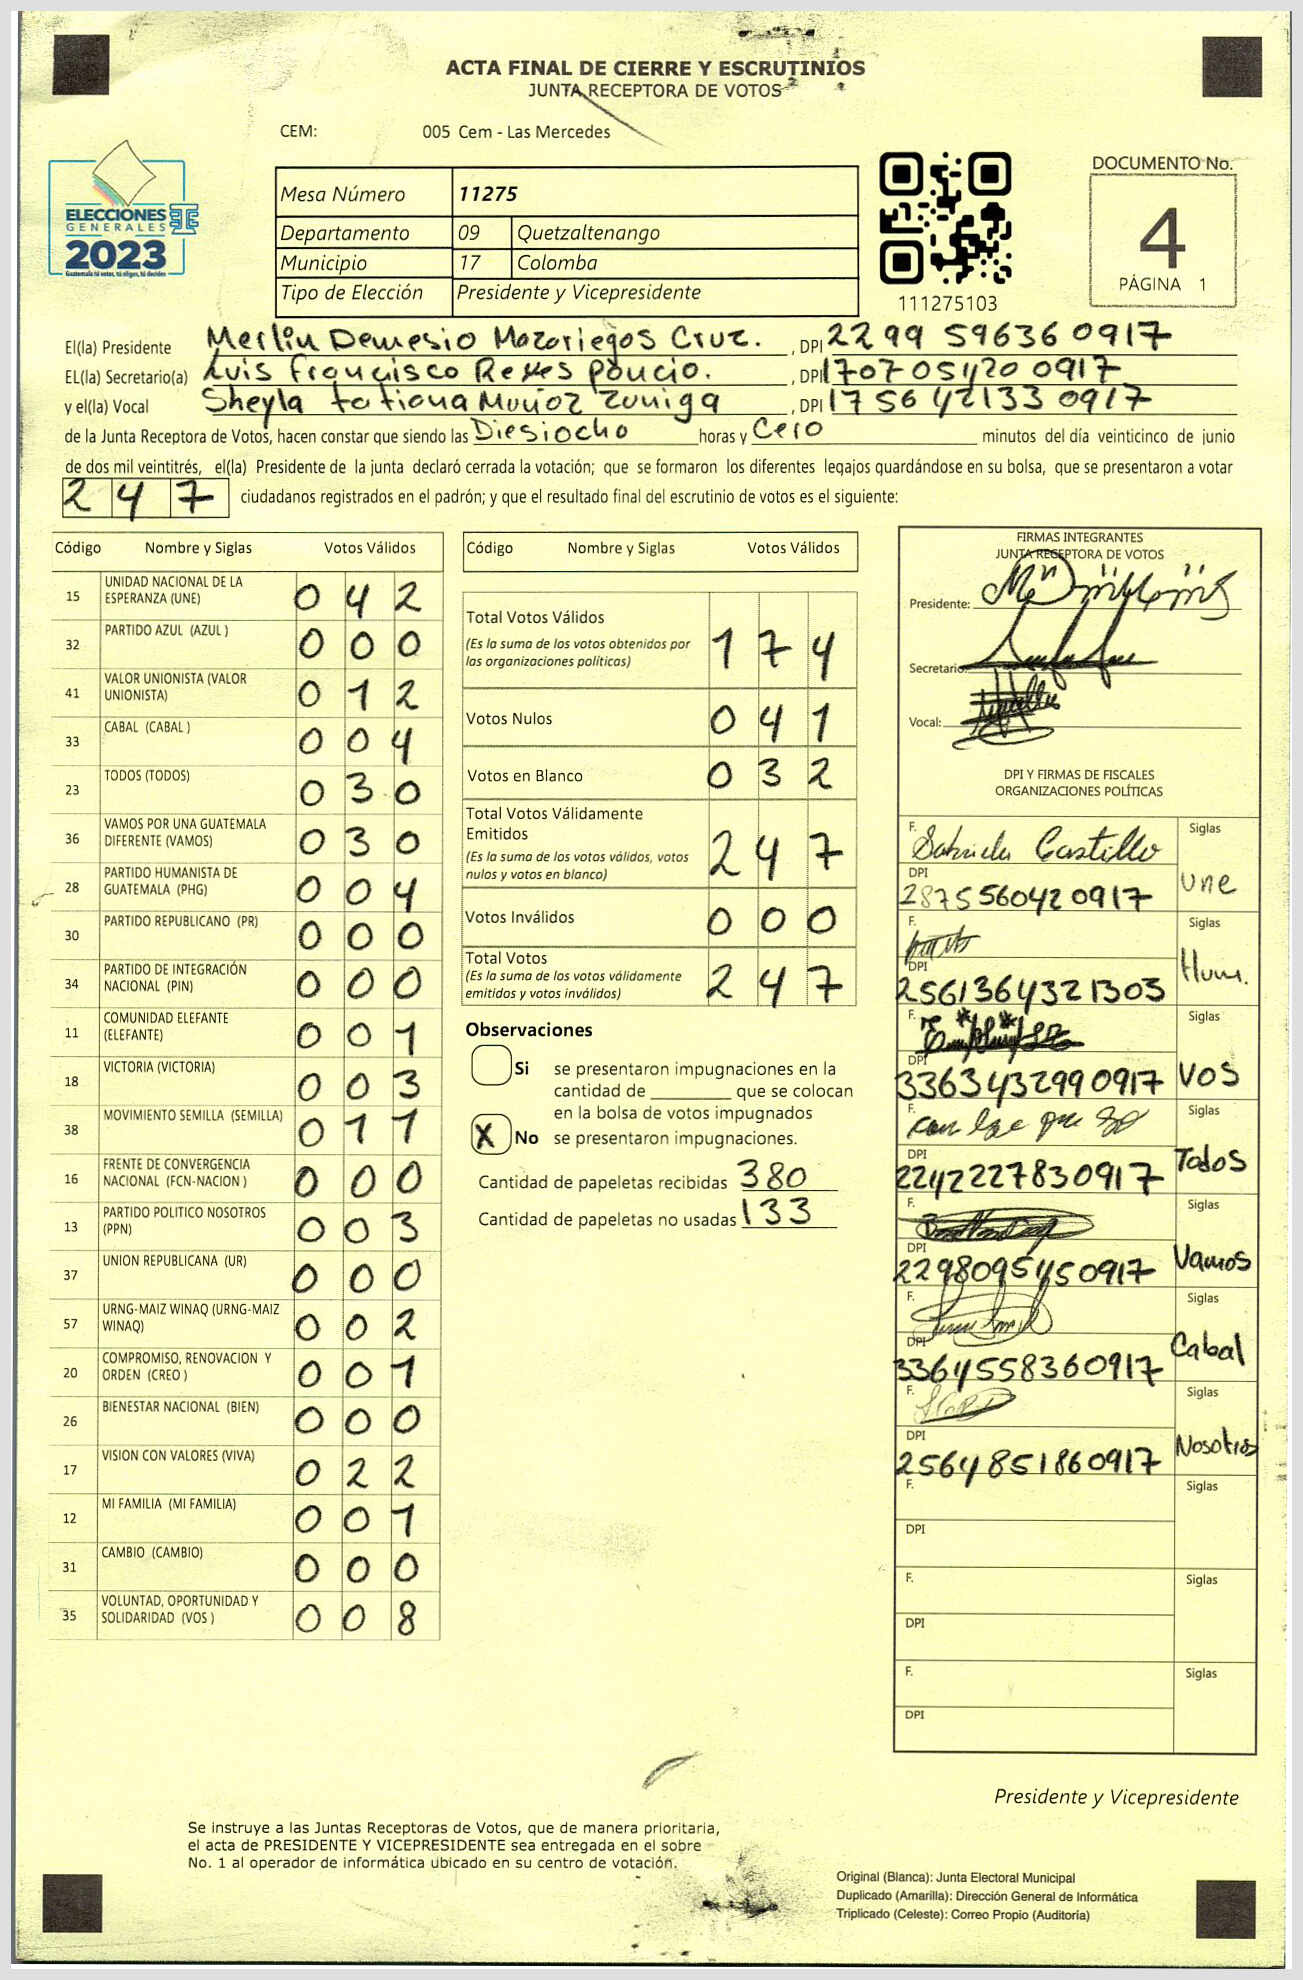 ACTA FINAL DE CIERRE Y ESCRUTINIOS
JUNTA RECEPTORA DE VOTOS
CEM: 005 Cem - Las Mercedes
ELECCIONES
GENERALES
2023
Guatemala tú votas, tú eliges, tú decides
Mesa Número 11275
Departamento 09 Quetzaltenango
Municipio 17 Colomba
Tipo de Elección Presidente y Vicepresidente
111275103
DOCUMENTO No.
4
PÁGINA 1
El(la) Presidente Merlin Demesio Mazariegos Cruz. , DPI 2299 59636 0917
EL(la) Secretario(a) Luis Francisco Reyes Poncio. , DPI 1707 05420 0917
y el(la) Vocal Sheyla tatiana Muñoz Zuniga , DPI 1756 42133 0917
de la Junta Receptora de Votos, hacen constar que siendo las Diesiocho horas y Cero minutos del día veinticinco de junio
de dos mil veintitrés, el(la) Presidente de la junta declaró cerrada la votación; que se formaron los diferentes legajos guardándose en su bolsa, que se presentaron a votar
247 ciudadanos registrados en el padrón; y que el resultado final del escrutinio de votos es el siguiente:
Código Nombre y Siglas Votos Válidos
15 UNIDAD NACIONAL DE LA ESPERANZA (UNE) 042
32 PARTIDO AZUL (AZUL ) 000
41 VALOR UNIONISTA (VALOR UNIONISTA) 012
33 CABAL (CABAL ) 004
23 TODOS (TODOS) 030
36 VAMOS POR UNA GUATEMALA DIFERENTE (VAMOS) 030
28 PARTIDO HUMANISTA DE GUATEMALA (PHG) 004
30 PARTIDO REPUBLICANO (PR) 000
34 PARTIDO DE INTEGRACIÓN NACIONAL (PIN) 000
11 COMUNIDAD ELEFANTE (ELEFANTE) 001
18 VICTORIA (VICTORIA) 003
38 MOVIMIENTO SEMILLA (SEMILLA) 011
16 FRENTE DE CONVERGENCIA NACIONAL (FCN-NACION ) 000
13 PARTIDO POLITICO NOSOTROS (PPN) 003
37 UNION REPUBLICANA (UR) 000
57 URNG-MAIZ WINAQ (URNG-MAIZ WINAQ) 002
20 COMPROMISO, RENOVACION Y ORDEN (CREO ) 001
26 BIENESTAR NACIONAL (BIEN) 000
17 VISION CON VALORES (VIVA) 022
12 MI FAMILIA (MI FAMILIA) 001
31 CAMBIO (CAMBIO) 000
35 VOLUNTAD, OPORTUNIDAD Y SOLIDARIDAD (VOS ) 008
Código Nombre y Siglas Votos Válidos
Total Votos Válidos 174
(Es la suma de los votos obtenidos por
las organizaciones políticas)
Votos Nulos 041
Votos en Blanco 032
Total Votos Válidamente
Emitidos 247
(Es la suma de los votos válidos, votos
nulos y votos en blanco)
Votos Inválidos 000
Total Votos 247
(Es la suma de los votos válidamente
emitidos y votos inválidos)
Observaciones
Si se presentaron impugnaciones en la
cantidad de ________ que se colocan
en la bolsa de votos impugnados
X No se presentaron impugnaciones.
Cantidad de papeletas recibidas 380
Cantidad de papeletas no usadas 133
FIRMAS INTEGRANTES
JUNTA RECEPTORA DE VOTOS
Presidente:
Secretario:
Vocal:
DPI Y FIRMAS DE FISCALES
ORGANIZACIONES POLÍTICAS
F. Gabriela Castillo Siglas
DPI 2875560420917 Une
F. Siglas
DPI 2561364321303 Hum.
F. Siglas
DPI 3363432990917 VOS
F. Siglas
DPI 2242227830917 Todos
F. Siglas
DPI 2298095450917 Vamos
F. Siglas
DPI 3364558360917 Cabal
F. Siglas
DPI 2564851860917 Nosotros
F. Siglas
DPI
F. Siglas
DPI
F. Siglas
DPI
Presidente y Vicepresidente
Se instruye a las Juntas Receptoras de Votos, que de manera prioritaria,
el acta de PRESIDENTE Y VICEPRESIDENTE sea entregada en el sobre
No. 1 al operador de informática ubicado en su centro de votación.
Original (Blanca): Junta Electoral Municipal
Duplicado (Amarilla): Dirección General de Informática
Triplicado (Celeste): Correo Propio (Auditoría)